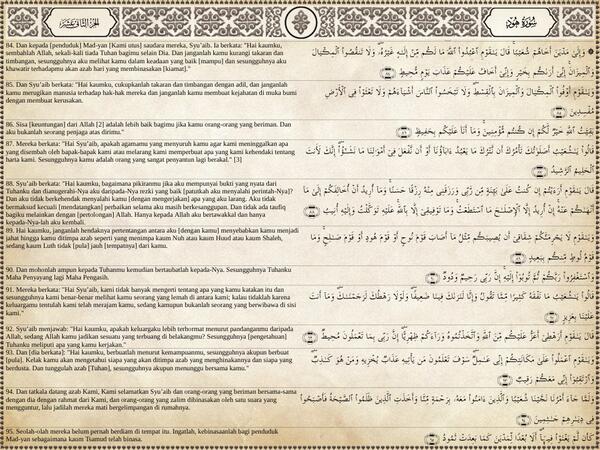 الجزء الثاني عشر
سورة هود
84. Dan kepada [penduduk] Mad-yan [Kami utus] saudara mereka, Syu'aib. Ia berkata: "Hai kaumku,
sembahlah Allah, sekali-kali tiada Tuhan bagimu selain Dia. Dan janganlah kamu kurangi takaran dan
timbangan, sesungguhnya aku melihat kamu dalam keadaan yang baik [mampu] dan sesungguhnya aku
khawatir terhadapmu akan azab hari yang membinasakan [kiamat]."
وَإِلَىٰ مَدْيَنَ أَخَاهُمْ شُعَيْبًا قَالَ يَـٰقَوْمِ ٱعْبُدُوا۟ ٱللَّهَ مَا لَكُم مِّنْ إِلَـٰهٍ غَيْرُهُۥ وَلَا تَنقُصُوا۟ ٱلْمِكْيَالَ
وَٱلْمِيزَانَ إِنِّىٓ أَرَىٰكُم بِخَيْرٍ وَإِنِّىٓ أَخَافُ عَلَيْكُمْ عَذَابَ يَوْمٍ مُّحِيطٍ ٨٤
85. Dan Syu'aib berkata: "Hai kaumku, cukupkanlah takaran dan timbangan dengan adil, dan janganlah
kamu merugikan manusia terhadap hak-hak mereka dan janganlah kamu membuat kejahatan di muka bumi
dengan membuat kerusakan.
وَيَـٰقَوْمِ أَوْفُوا۟ ٱلْمِكْيَالَ وَٱلْمِيزَانَ بِٱلْقِسْطِ وَلَا تَبْخَسُوا۟ ٱلنَّاسَ أَشْيَآءَهُمْ وَلَا تَعْثَوْا۟ فِى ٱلْأَرْضِ
مُفْسِدِينَ ٨٥
86. Sisa [keuntungan] dari Allah [2] adalah lebih baik bagimu jika kamu orang-orang yang beriman. Dan
aku bukanlah seorang penjaga atas dirimu."
بَقِيَّتُ ٱللَّهِ خَيْرٌ لَّكُمْ إِن كُنتُم مُّؤْمِنِينَ وَمَآ أَنَا۠ عَلَيْكُم بِحَفِيظٍ ٨٦
87. Mereka berkata: "Hai Syu'aib, apakah agamamu yang menyuruh kamu agar kami meninggalkan apa
yang disembah oleh bapak-bapak kami atau melarang kami memperbuat apa yang kami kehendaki tentang
harta kami. Sesungguhnya kamu adalah orang yang sangat penyantun lagi berakal." [3]
قَالُوا۟ يَـٰشُعَيْبُ أَصَلَوٰتُكَ تَأْمُرُكَ أَن نَّتْرُكَ مَا يَعْبُدُ ءَابَآؤُنَآ أَوْ أَن نَّفْعَلَ فِىٓ أَمْوَٰلِنَا مَا نَشَـٰٓؤُا۟ إِنَّكَ لَأَنتَ
ٱلْحَلِيمُ ٱلرَّشِيدُ ٨٧
88. Syu'aib berkata: "Hai kaumku, bagaimana pikiranmu jika aku mempunyai bukti yang nyata dari
Tuhanku dan dianugerahi-Nya aku daripada-Nya rezki yang baik [patutkah aku menyalahi perintah-Nya]?
Dan aku tidak berkehendak menyalahi kamu [dengan mengerjakan] apa yang aku larang. Aku tidak
bermaksud kecuali [mendatangkan] perbaikan selama aku masih berkesanggupan. Dan tidak ada taufiq
bagiku melainkan dengan [pertolongan] Allah. Hanya kepada Allah aku bertawakkal dan hanya
kepada-Nya-lah aku kembali.
قَالَ يَـٰقَوْمِ أَرَءَيْتُمْ إِن كُنتُ عَلَىٰ بَيِّنَةٍ مِّن رَّبِّى وَرَزَقَنِى مِنْهُ رِزْقًا حَسَنًا وَمَآ أُرِيدُ أَنْ أُخَالِفَكُمْ إِلَىٰ مَآ
أَنْهَىٰكُمْ عَنْهُ إِنْ أُرِيدُ إِلَّا ٱلْإِصْلَـٰحَ مَا ٱسْتَطَعْتُ وَمَا تَوْفِيقِىٓ إِلَّا بِٱللَّهِ عَلَيْهِ تَوَكَّلْتُ وَإِلَيْهِ أُنِيبُ ٨٨
89. Hai kaumku, janganlah hendaknya pertentangan antara aku [dengan kamu] menyebabkan kamu menjadi
jahat hingga kamu ditimpa azab seperti yang menimpa kaum Nuh atau kaum Huud atau kaum Shaleh,
sedang kaum Luth tidak [pula] jauh [tempatnya] dari kamu.
وَيَـٰقَوْمِ لَا يَجْرِمَنَّكُمْ شِقَاقِىٓ أَن يُصِيبَكُم مِّثْلُ مَآ أَصَابَ قَوْمَ نُوحٍ أَوْ قَوْمَ هُودٍ أَوْ قَوْمَ صَـٰلِحٍ وَمَا
قَوْمُ لُوطٍ مِّنكُم بِبَعِيدٍ ٨٩
90. Dan mohonlah ampun kepada Tuhanmu kemudian bertaubatlah kepada-Nya. Sesungguhnya Tuhanku
Maha Penyayang lagi Maha Pengasih.
وَٱسْتَغْفِرُوا۟ رَبَّكُمْ ثُمَّ تُوبُوٓا۟ إِلَيْهِ إِنَّ رَبِّى رَحِيمٌ وَدُودٌ ٩٠
91. Mereka berkata: "Hai Syu'aib, kami tidak banyak mengerti tentang apa yang kamu katakan itu dan
sesungguhnya kami benar-benar melihat kamu seorang yang lemah di antara kami; kalau tidaklah karena
keluargamu tentulah kami telah merajam kamu, sedang kamupun bukanlah seorang yang berwibawa di sisi
kami."
قَالُوا۟ يَـٰشُعَيْبُ مَا نَفْقَهُ كَثِيرًا مِّمَّا تَقُولُ وَإِنَّا لَنَرَىٰكَ فِينَا ضَعِيفًا وَلَوْلَا رَهْطُكَ لَرَجَمْنَـٰكَ وَمَآ أَنتَ
عَلَيْنَا بِعَزِيزٍ ٩١
92. Syu'aib menjawab: "Hai kaumku, apakah keluargaku lebih terhormat menurut pandanganmu daripada
Allah, sedang Allah kamu jadikan sesuatu yang terbuang di belakangmu? Sesungguhnya [pengetahuan]
Tuhanku meliputi apa yang kamu kerjakan."
قَالَ يَـٰقَوْمِ أَرَهْطِىٓ أَعَزُّ عَلَيْكُم مِّنَ ٱللَّهِ وَٱتَّخَذْتُمُوهُ وَرَآءَكُمْ ظِهْرِيًّا إِنَّ رَبِّى بِمَا تَعْمَلُونَ مُحِيطٌ ٩٢
93. Dan [dia berkata]: "Hai kaumku, berbuatlah menurut kemampuanmu, sesungguhnya akupun berbuat
[pula]. Kelak kamu akan mengetahui siapa yang akan ditimpa azab yang menghinakannya dan siapa yang
berdusta. Dan tunggulah azab [Tuhan], sesungguhnya akupun menunggu bersama kamu."
وَيَـٰقَوْمِ ٱعْمَلُوا۟ عَلَىٰ مَكَانَتِكُمْ إِنِّى عَـٰمِلٌ سَوْفَ تَعْلَمُونَ مَن يَأْتِيهِ عَذَابٌ يُخْزِيهِ وَمَنْ هُوَ كَـٰذِبٌ
وَٱرْتَقِبُوٓا۟ إِنِّى مَعَكُمْ رَقِيبٌ ٩٣
94. Dan tatkala datang azab Kami, Kami selamatkan Syu'aib dan orang-orang yang beriman bersama-sama
dengan dia dengan rahmat dari Kami, dan orang-orang yang zalim dibinasakan oleh satu suara yang
mengguntur, lalu jadilah mereka mati bergelimpangan di rumahnya.
وَلَمَّا جَآءَ أَمْرُنَا نَجَّيْنَا شُعَيْبًا وَٱلَّذِينَ ءَامَنُوا۟ مَعَهُۥ بِرَحْمَةٍ مِّنَّا وَأَخَذَتِ ٱلَّذِينَ ظَلَمُوا۟ ٱلصَّيْحَةُ فَأَصْبَحُوا۟
فِى دِيَـٰرِهِمْ جَـٰثِمِينَ ٩٤
95. Seolah-olah mereka belum pernah berdiam di tempat itu. Ingatlah, kebinasaanlah bagi penduduk
Mad-yan sebagaimana kaum Tsamud telah binasa.
كَأَن لَّمْ يَغْنَوْا۟ فِيهَآ أَلَا بُعْدًا لِّمَدْيَنَ كَمَا بَعِدَتْ ثَمُودُ ٩٥